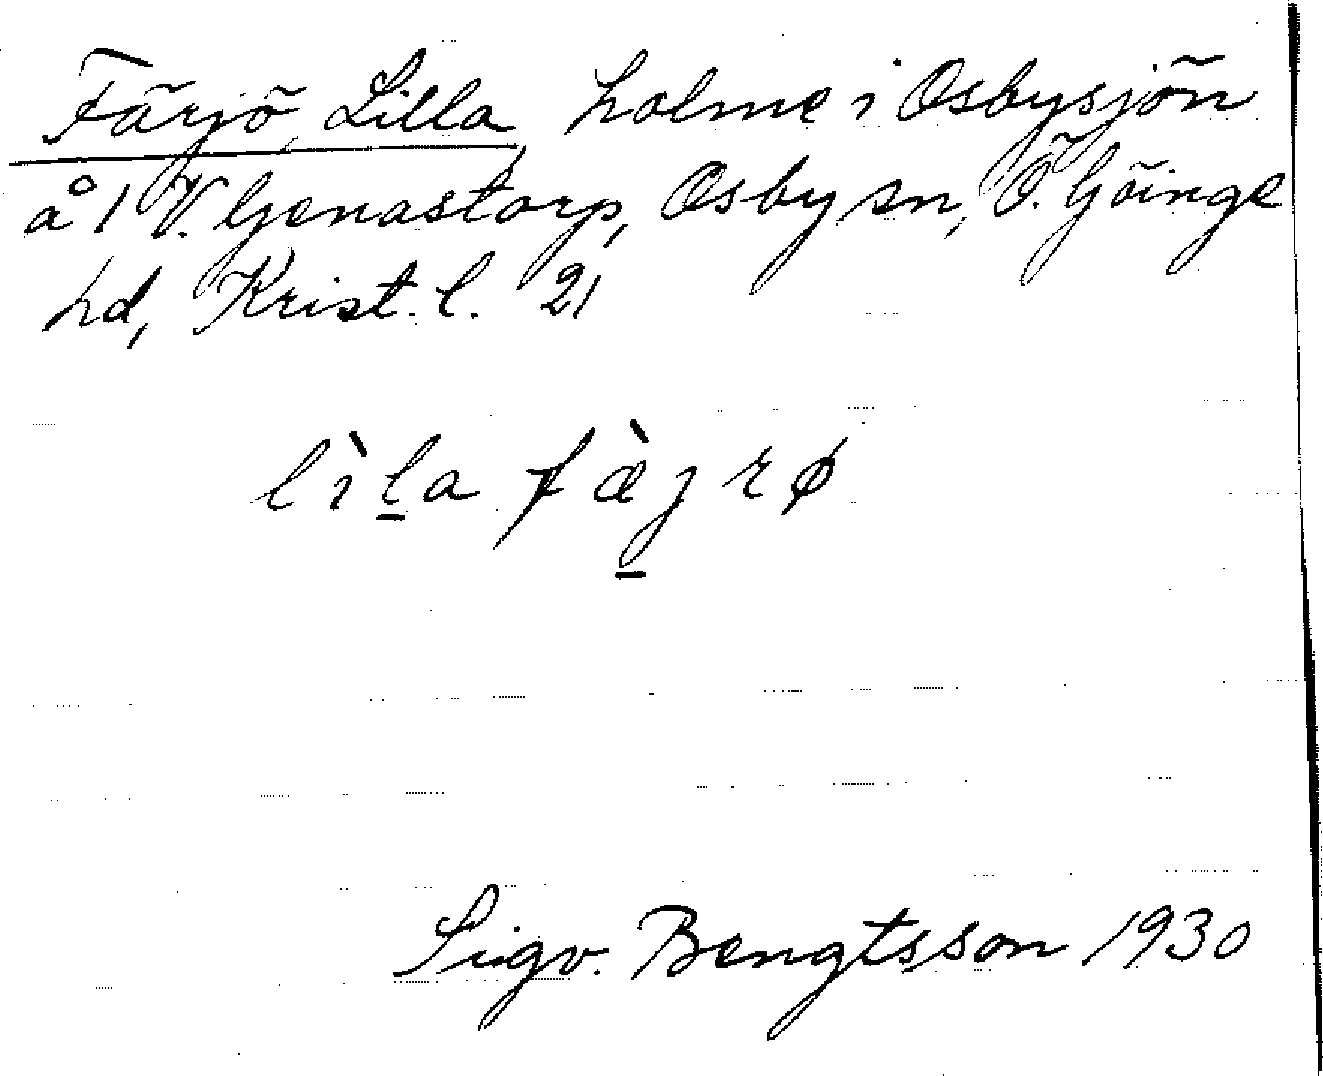 Färjö, Lilla, holme i Osbysjön
å 1 V. Genastorp, Osby sn, Ö. Göinge
hd, Krist. l. 21
lìla fæ̀jrø
Sigv. Bengtsson 1930